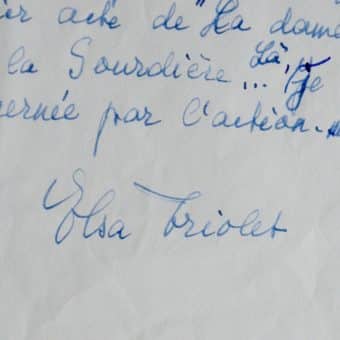 acte de "La dame
la Sourdière... Là, je
ernée par l'action.
Elsa Triolet